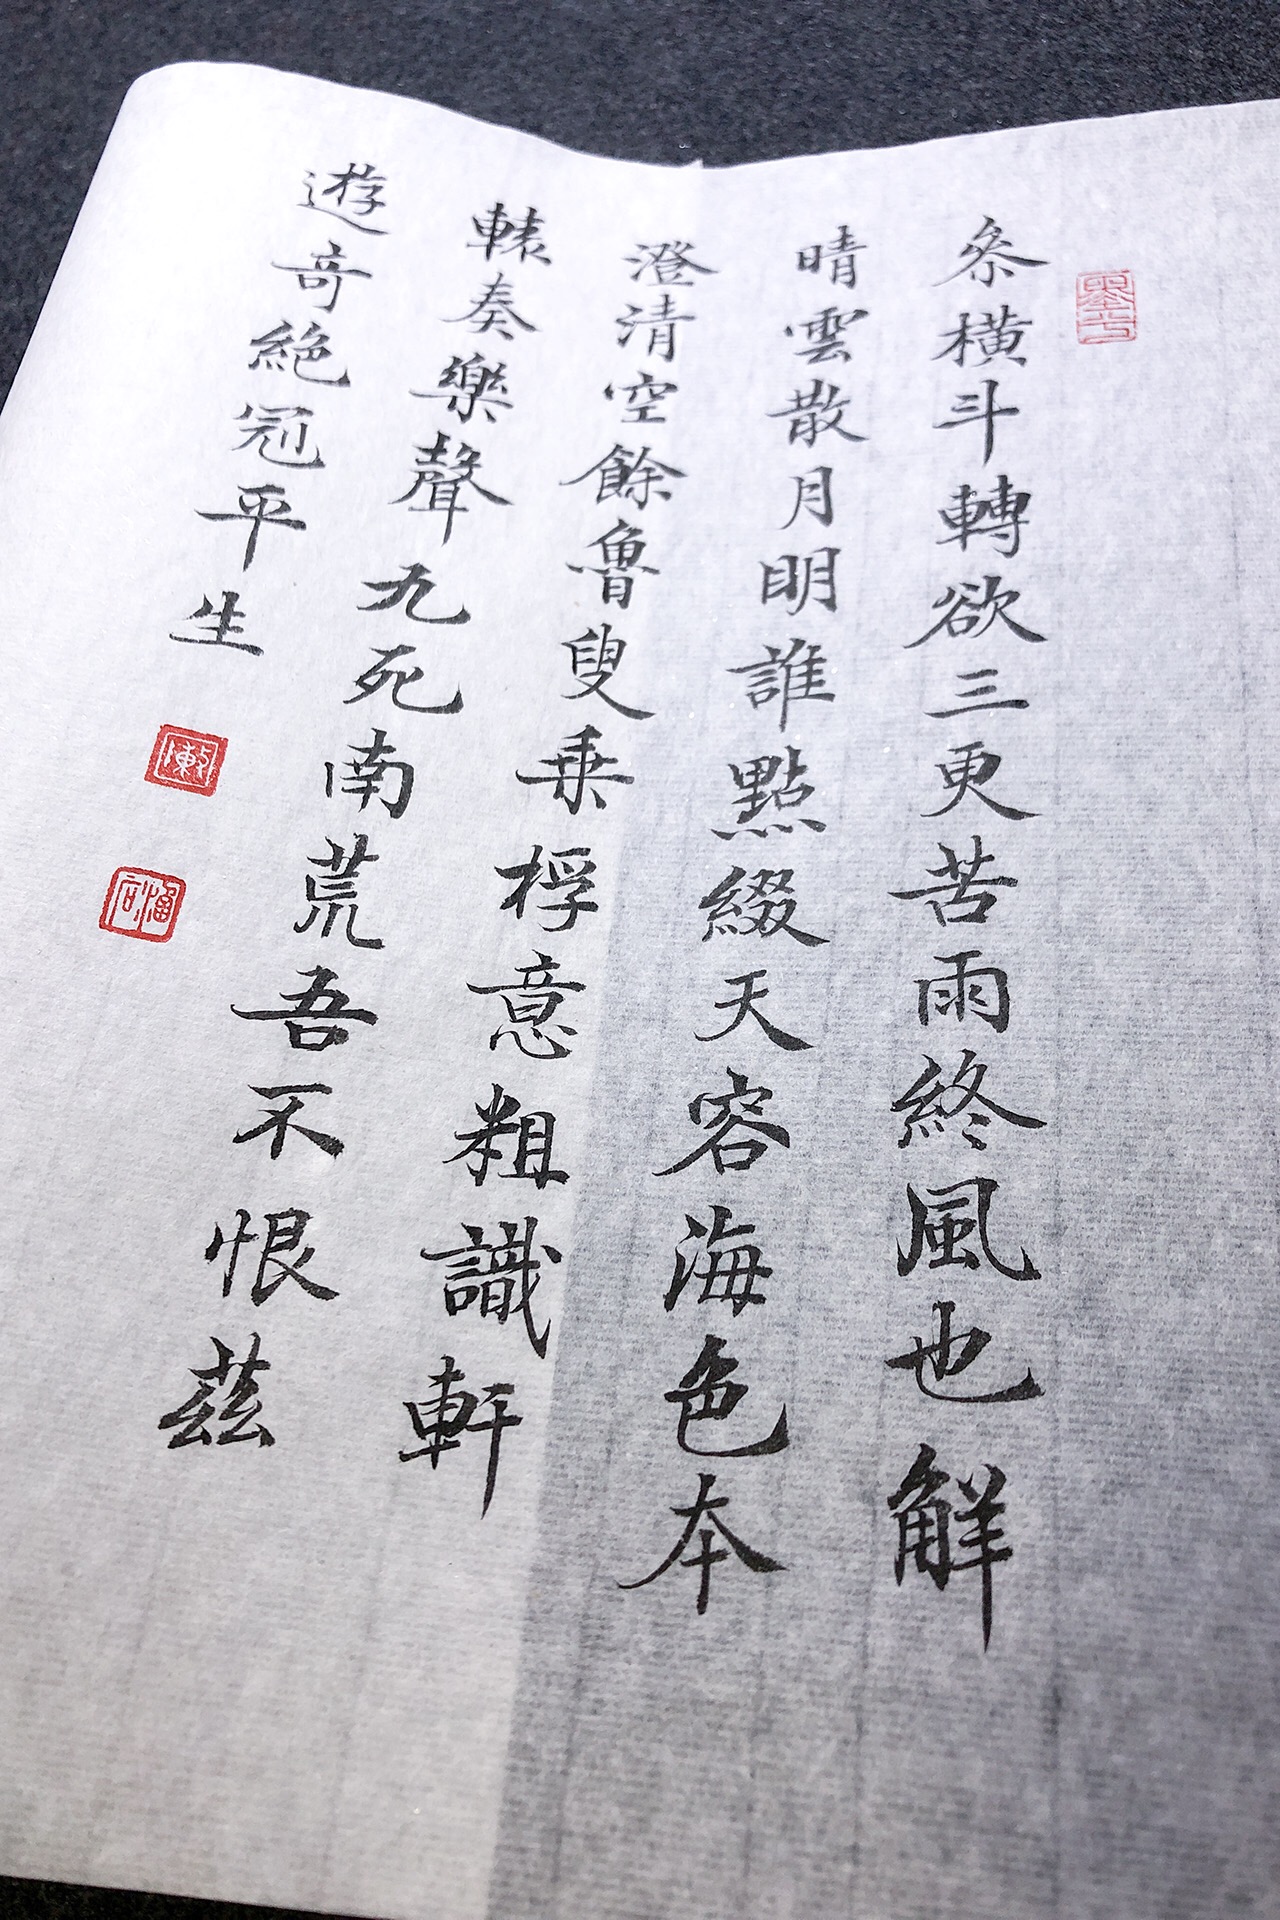 參橫斗轉欲三更苦雨終風也解
晴雲散月明誰點綴天容海色本
澄清空餘魯叟乘桴意粗識軒
轅奏樂聲九死南荒吾不恨茲
遊奇絕冠平生